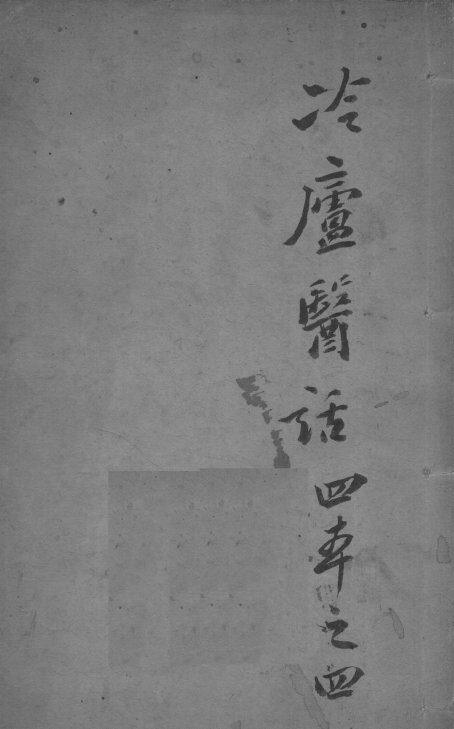 冷廬醫話四本之四